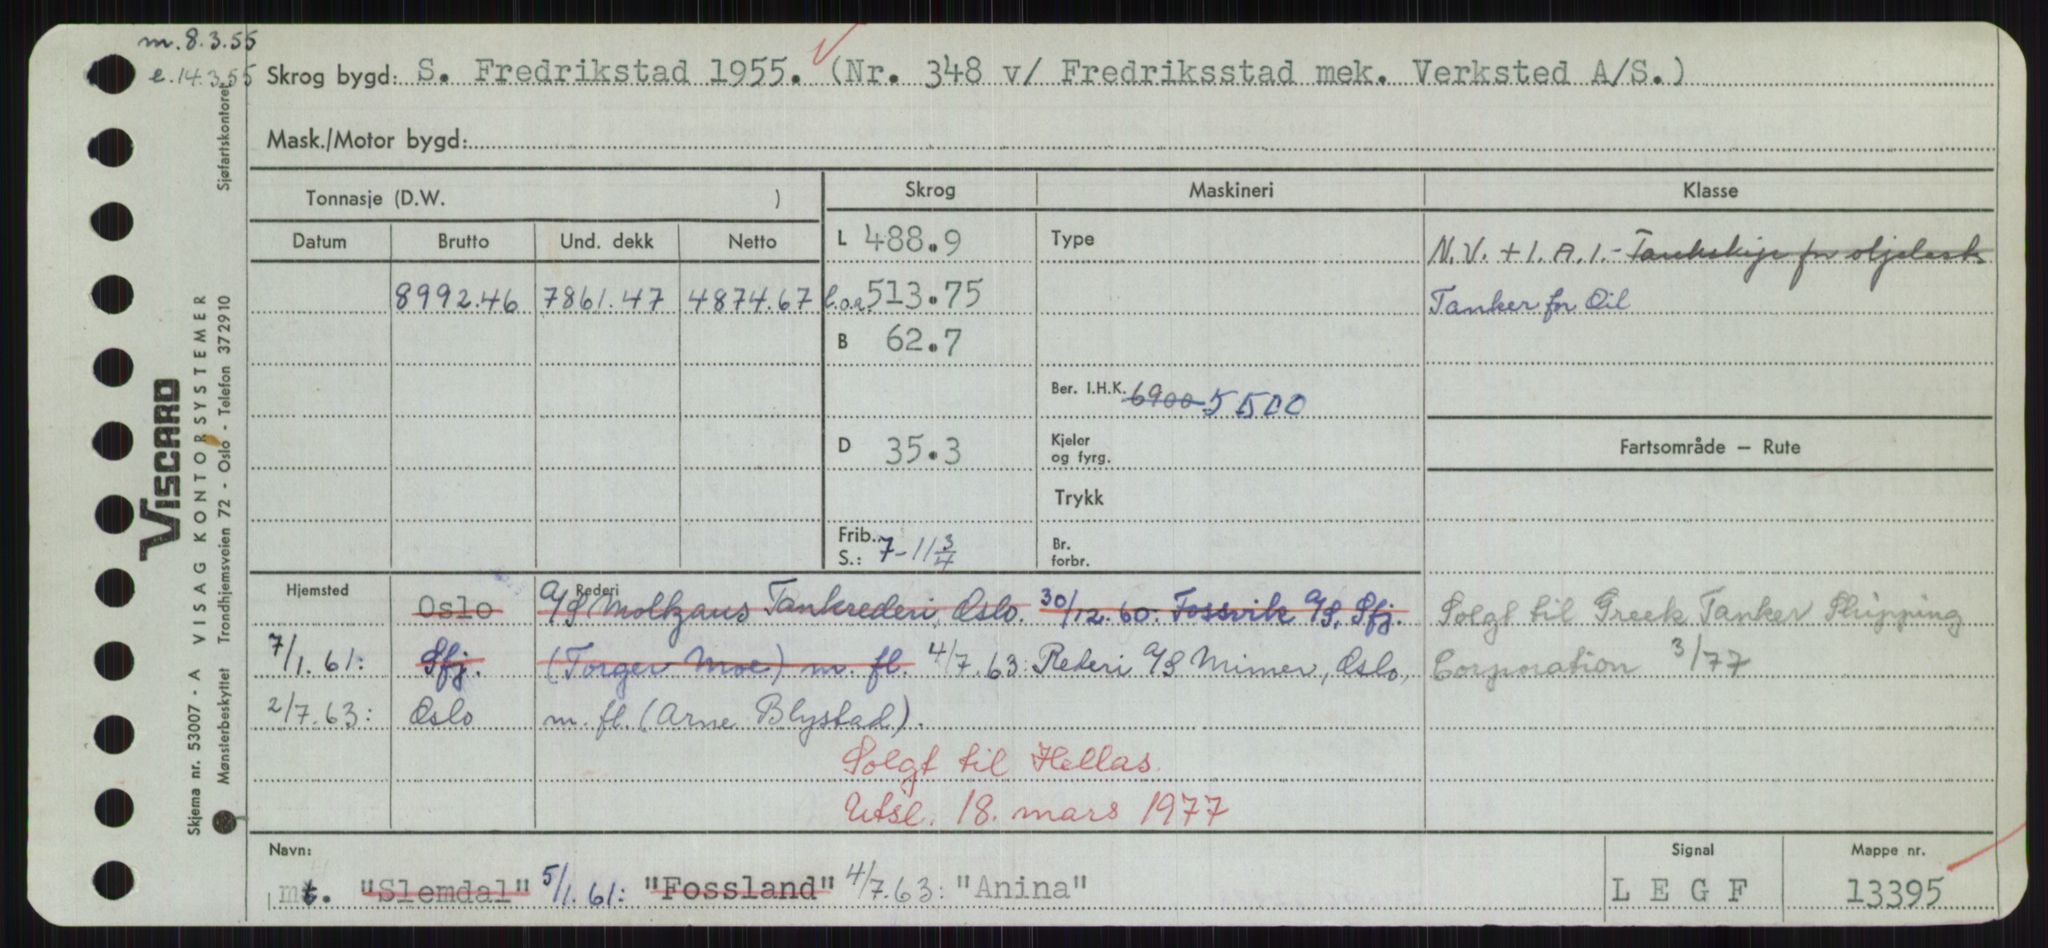 m. 8.3.55
e. 14.3.55
Skrog bygd: S. Fredrikstad 1955. (Nr. 348 v/ Fredriksstad mek. Verksted A/S.)
Mask./Motor bygd:
Tonnasje (D.W. )
Skrog
Maskineri
Klasse
Datum Brutto Und. dekk Netto
L 488.9
Type
N.V. + 1. A. 1. - Tankskip for oljelast
8992.46 7861.47 4874.67
l.o.a. 513.75
Tanker for Oil
B 62.7
Ber. I.H.K. 6900 5500
D 35.3
Kjeler
og fyrg.
Fartsområde — Rute
Trykk
Frib.
S.: 7-11 3/4
Br.
forbr.
Hjemsted
Rederi
Oslo A/S Moltzaus Tankrederi, Oslo. 30/12.60: Fossvik A/S, Sfj.
Solgt til Greek Tanker Shipping
7/1.61: Sfj. (Torger Moe) m. fl. 4/7.63: Rederi A/S Mimer, Oslo,
Corporation 3/77
2/7.63: Oslo m. fl. (Arne Blystad).
Solgt til Hellas.
Utsl. 18. mars 1977
Navn:
Signal
Mappe nr.
mt. "Slemdal" 5/1.61: "Fossland" 4/7.63: "Anina"
LEGF
13395
VISCARD
Skjema nr. 53007 - A VISAG KONTORSYSTEMER
Mønsterbeskyttet Trondhjemsveien 72 - Oslo - Telefon 372910 Sjøfartskontoret